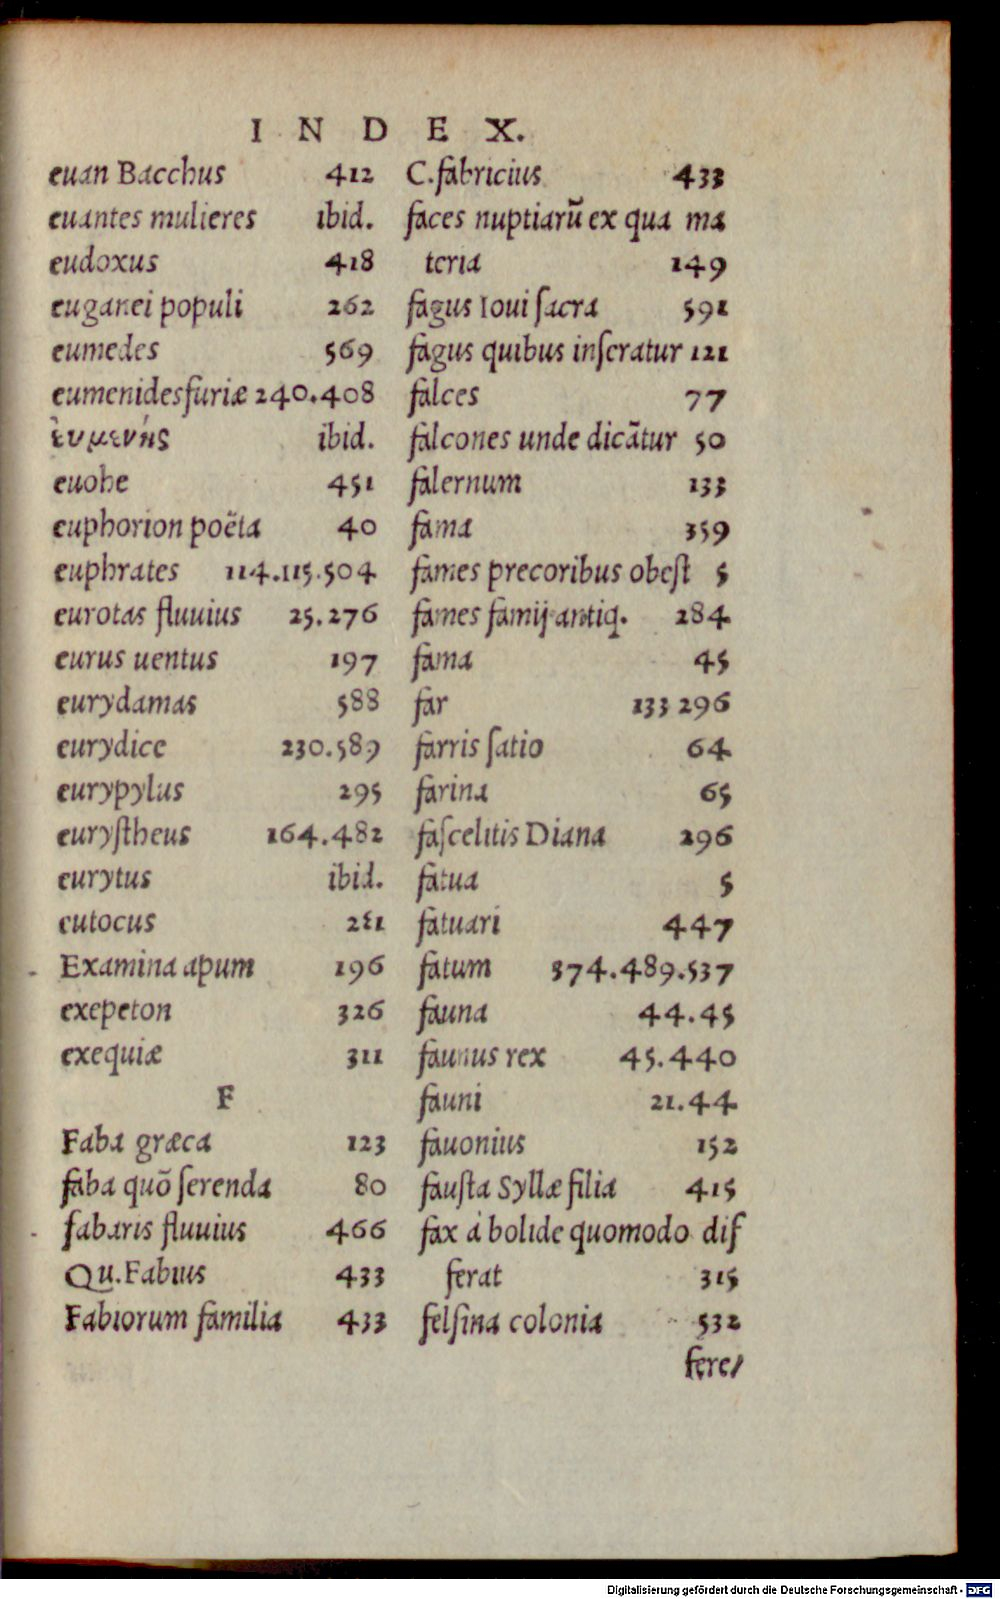 INDEX.
euan Bacchus 412
euantes mulieres ibid.
eudoxus 418
euganei populi 262
eumedes 569
eumenides furiæ 240.408
ἐυμενής ibid.
euohe 451
euphorion poëta 40
euphrates 114.115.504
eurotas fluuius 25.276
eurus uentus 197
eurydamas 588
eurydice 230.589
eurypylus 295
euryſtheus 164.482
eurytus ibid.
eutocus
Examina apum 196
exepeton 326
exequiæ 311
F
Faba græca 123
faba quõ ſerenda 80
fabaris fluuius 466
Qu. Fabius 433
Fabiorum familia 433
C. fabricius 433
faces nuptiarũ ex qua ma
teria 149
fagus Ioui ſacra 591
fagus quibus inſeratur 121
falces 77
falcones unde dicãtur 50
falernum 133
fama 359
fames precoribus obeſt 5
fames famij antiq. 284
fama 45
far 133 296
farris ſatio 64
farina 65
faſcelitis Diana 296
fatua 5
fatuari 447
fatum 374.489.537
fauna 44.45
faunus rex 45.440
fauni 21.44
fauonius 152
fauſta Syllæ filia 415
fax à bolide quomodo dif
ferat 315
felſina colonia 532
fere/
Digitalisierung gefördert durch die Deutsche Forschungsgemeinschaft - DFG